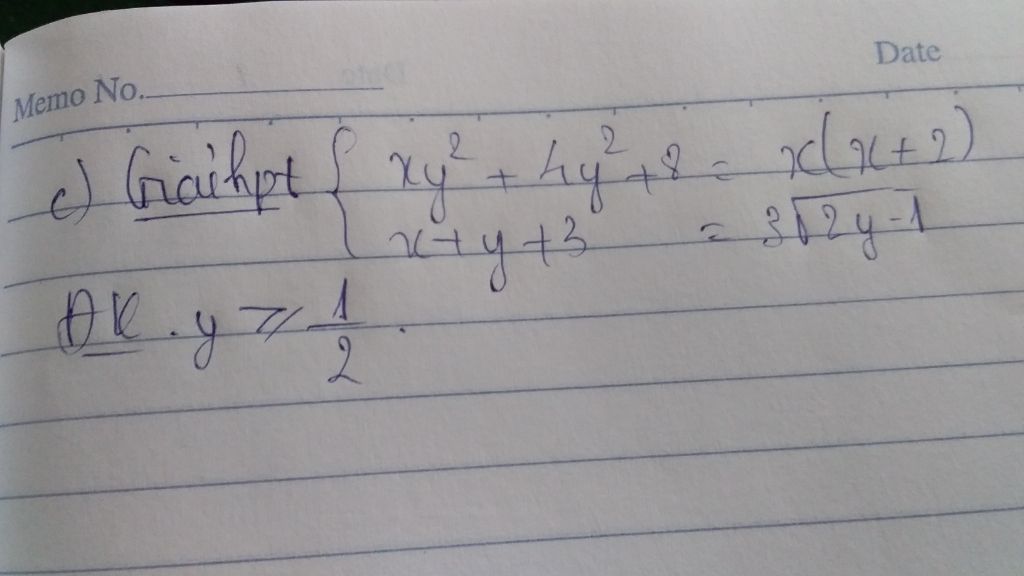 Date
Memo No.
c) Giải hpt { xy² + 4y² + 8 = x(x+2)
x + y + 3 = 3√2y-1
ĐK. y ⩾ 1/2.